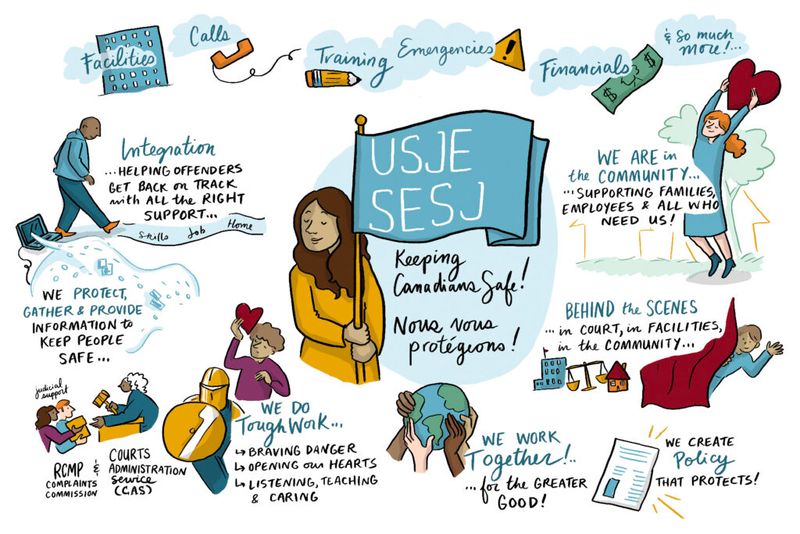 Facilities
Calls
Training
Emergencies
Financials
& So much
more!...
Integration
...HELPING OFFENDERS
GET BACK on TRACK
with ALL the RIGHT
SUPPORT...
Skills Job Home
USJE
SESJ
Keeping
Canadians Safe!
Nous vous
protégeons!
WE ARE in
the COMMUNITY...
...SUPPORTING FAMILIES,
EMPLOYEES & ALL WHO
NEED US!
WE PROTECT,
GATHER & PROVIDE
INFORMATION to
KEEP PEOPLE
SAFE...
BEHIND the SCENES
...in COURT, in FACILITIES,
in the COMMUNITY...
judicial
support
RCMP
COMPLAINTS
COMMISSION
&
COURTS
ADMINISTRATION
Service
(CAS)
WE DO
Tough Work...
↳ BRAVING DANGER
↳ OPENING our HEARTS
↳ LISTENING, TEACHING
& CARING
WE WORK
Together!..
...for the GREATER
GOOD!
WE CREATE
Policy
THAT PROTECTS!